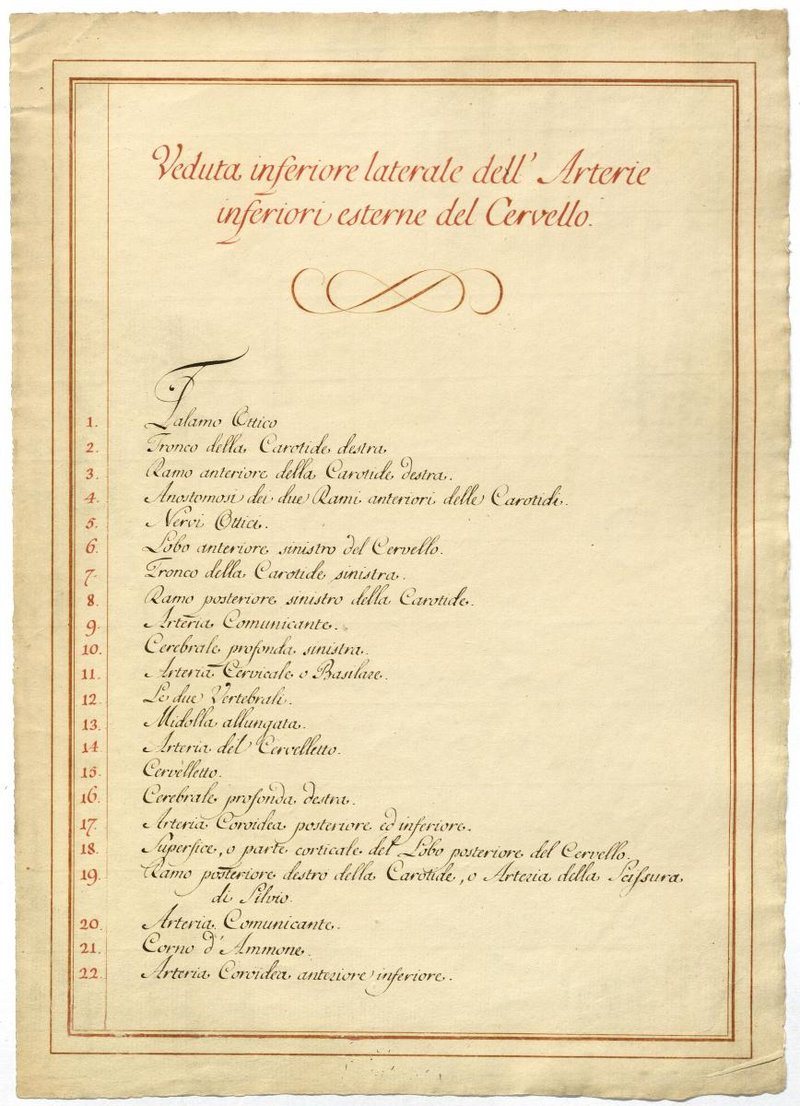 Veduta inferiore laterale dell' Arterie
inferiori esterne del Cervello.
1. Talamo Ottico
2. Tronco della Carotide destra
3. Ramo anteriore della Carotide destra.
4. Anostomosi dei due Rami anteriori delle Carotidi.
5. Nervi Ottici.
6. Lobo anteriore sinistro del Cervello.
7. Tronco della Carotide sinistra.
8. Ramo posteriore sinistro della Carotide.
9. Arteria Comunicante.
10. Cerebrale profonda sinistra.
11. Arteria Cervicale o Basilare.
12. Le due Vertebrali.
13. Midolla allungata.
14. Arteria del Cervelletto.
15. Cervelletto.
16. Cerebrale profonda destra.
17. Arteria Coroidea posteriore ed inferiore.
18. Superfice, o parte corticale del Lobo posteriore del Cervello.
19. Ramo posteriore destro della Carotide, o Arteria della Scissura
di Silvio.
20. Arteria Comunicante.
21. Corno d'Ammone.
22. Arteria Coroidea anteriore inferiore.